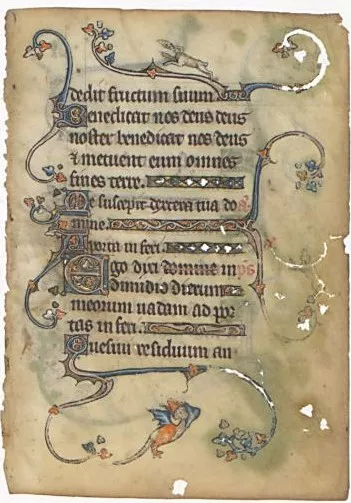 dedit fructum suum
Benedicat nos deus deus
noster benedicat nos deus
⁊ metuent eum omnes
fines terre.
Me suscepit dextera tua do
mine. a
Aporta inferi ps
Ego dixi in
dimidio dierum
meorum uadam ad por
tas inferi.
Quesiui residuum an